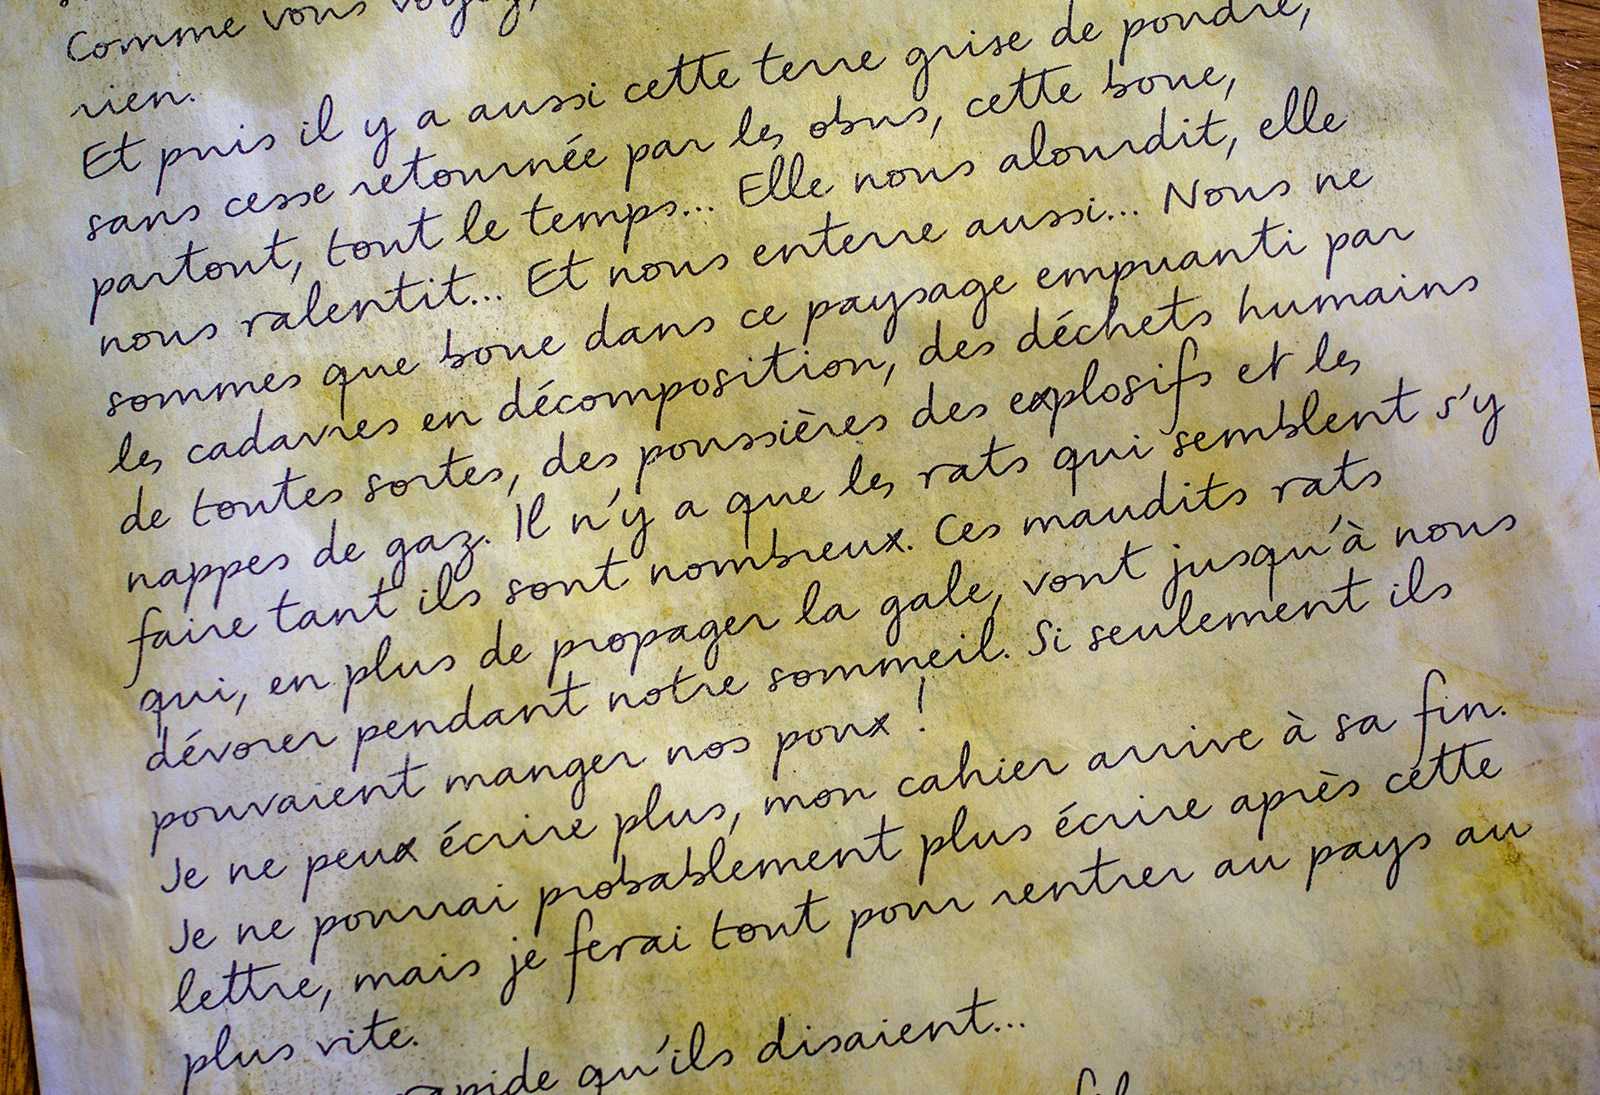 Comme vous voyez,
rien.
Et puis il y a aussi cette terre grise de poudre,
sans cesse retournée par les obus, cette boue,
partout, tout le temps... Elle nous alourdit, elle
nous ralentit... Et nous enterre aussi... Nous ne
sommes que boue dans ce paysage empuanti par
les cadavres en décomposition, des déchets humains
de toutes sortes, des poussières des explosifs et les
nappes de gaz. Il n'y a que les rats qui semblent s'y
faire tant ils sont nombreux. Ces maudits rats
qui, en plus de propager la gale, vont jusqu'à nous
dévorer pendant notre sommeil. Si seulement ils
pouvaient manger nos poux !
Je ne peux écrire plus, mon cahier arrive à sa fin.
Je ne pourrai probablement plus écrire après cette
lettre, mais je ferai tout pour rentrer au pays au
plus vite.
rapide qu'ils disaient...